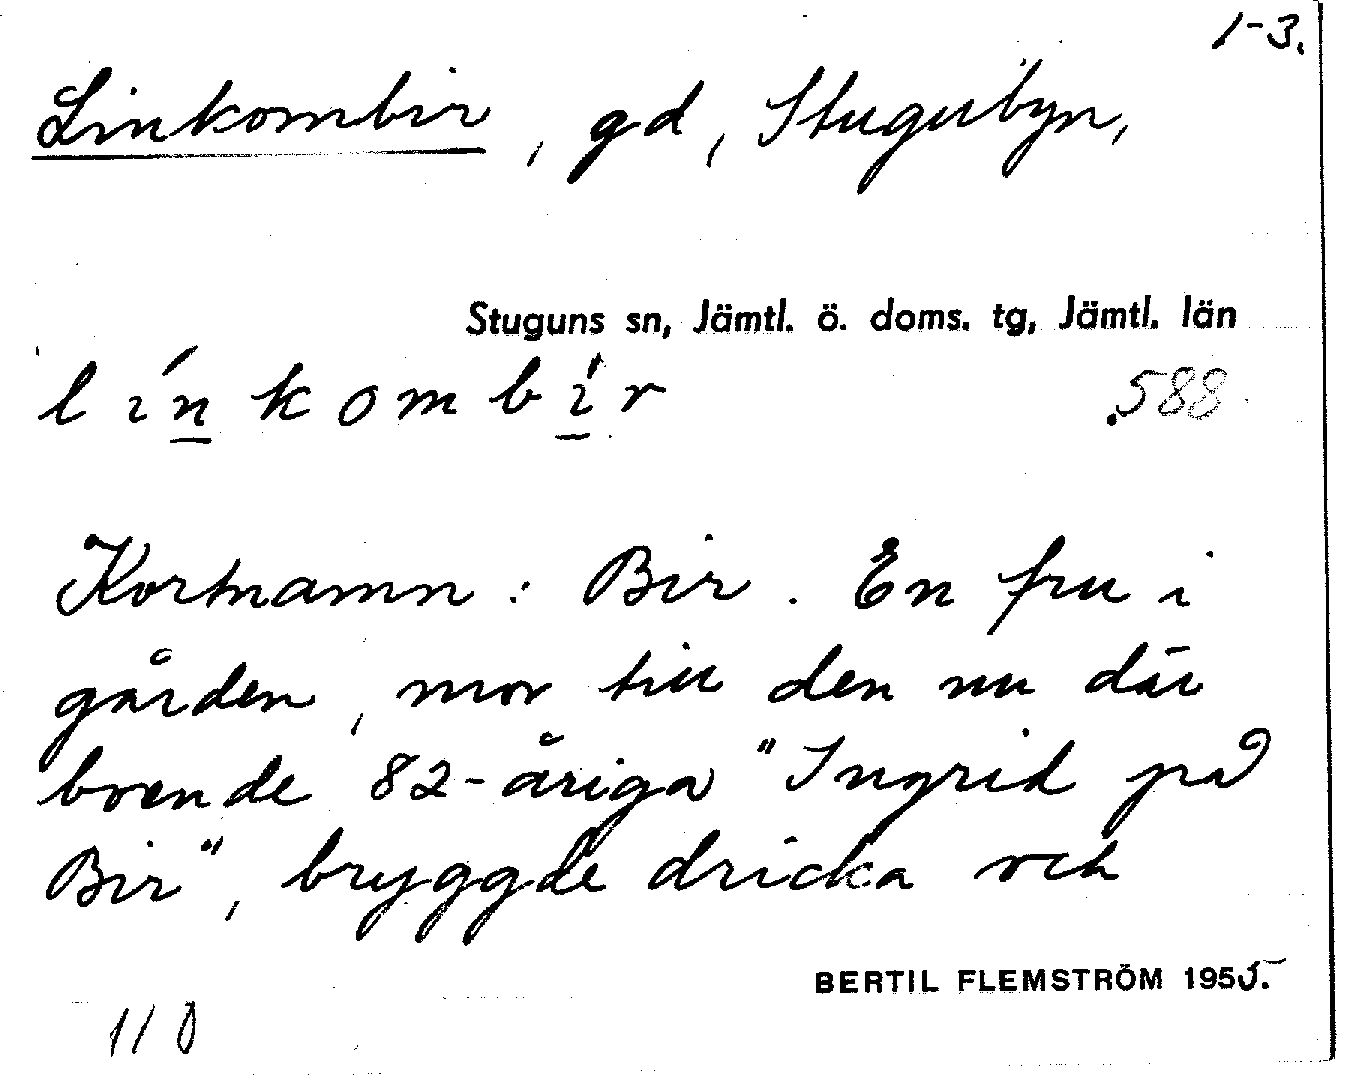 1-3.
Linkombir, gd, Stugubyn,
Stuguns sn, Jämtl. ö. doms. tg, Jämtl. län
línkombír
588
Kortnamn: Bir. En fru i
gården, mor till den nu där
boende 82-åriga "Ingrid på
Bir", bryggde dricka och
BERTIL FLEMSTRÖM 1955.
110